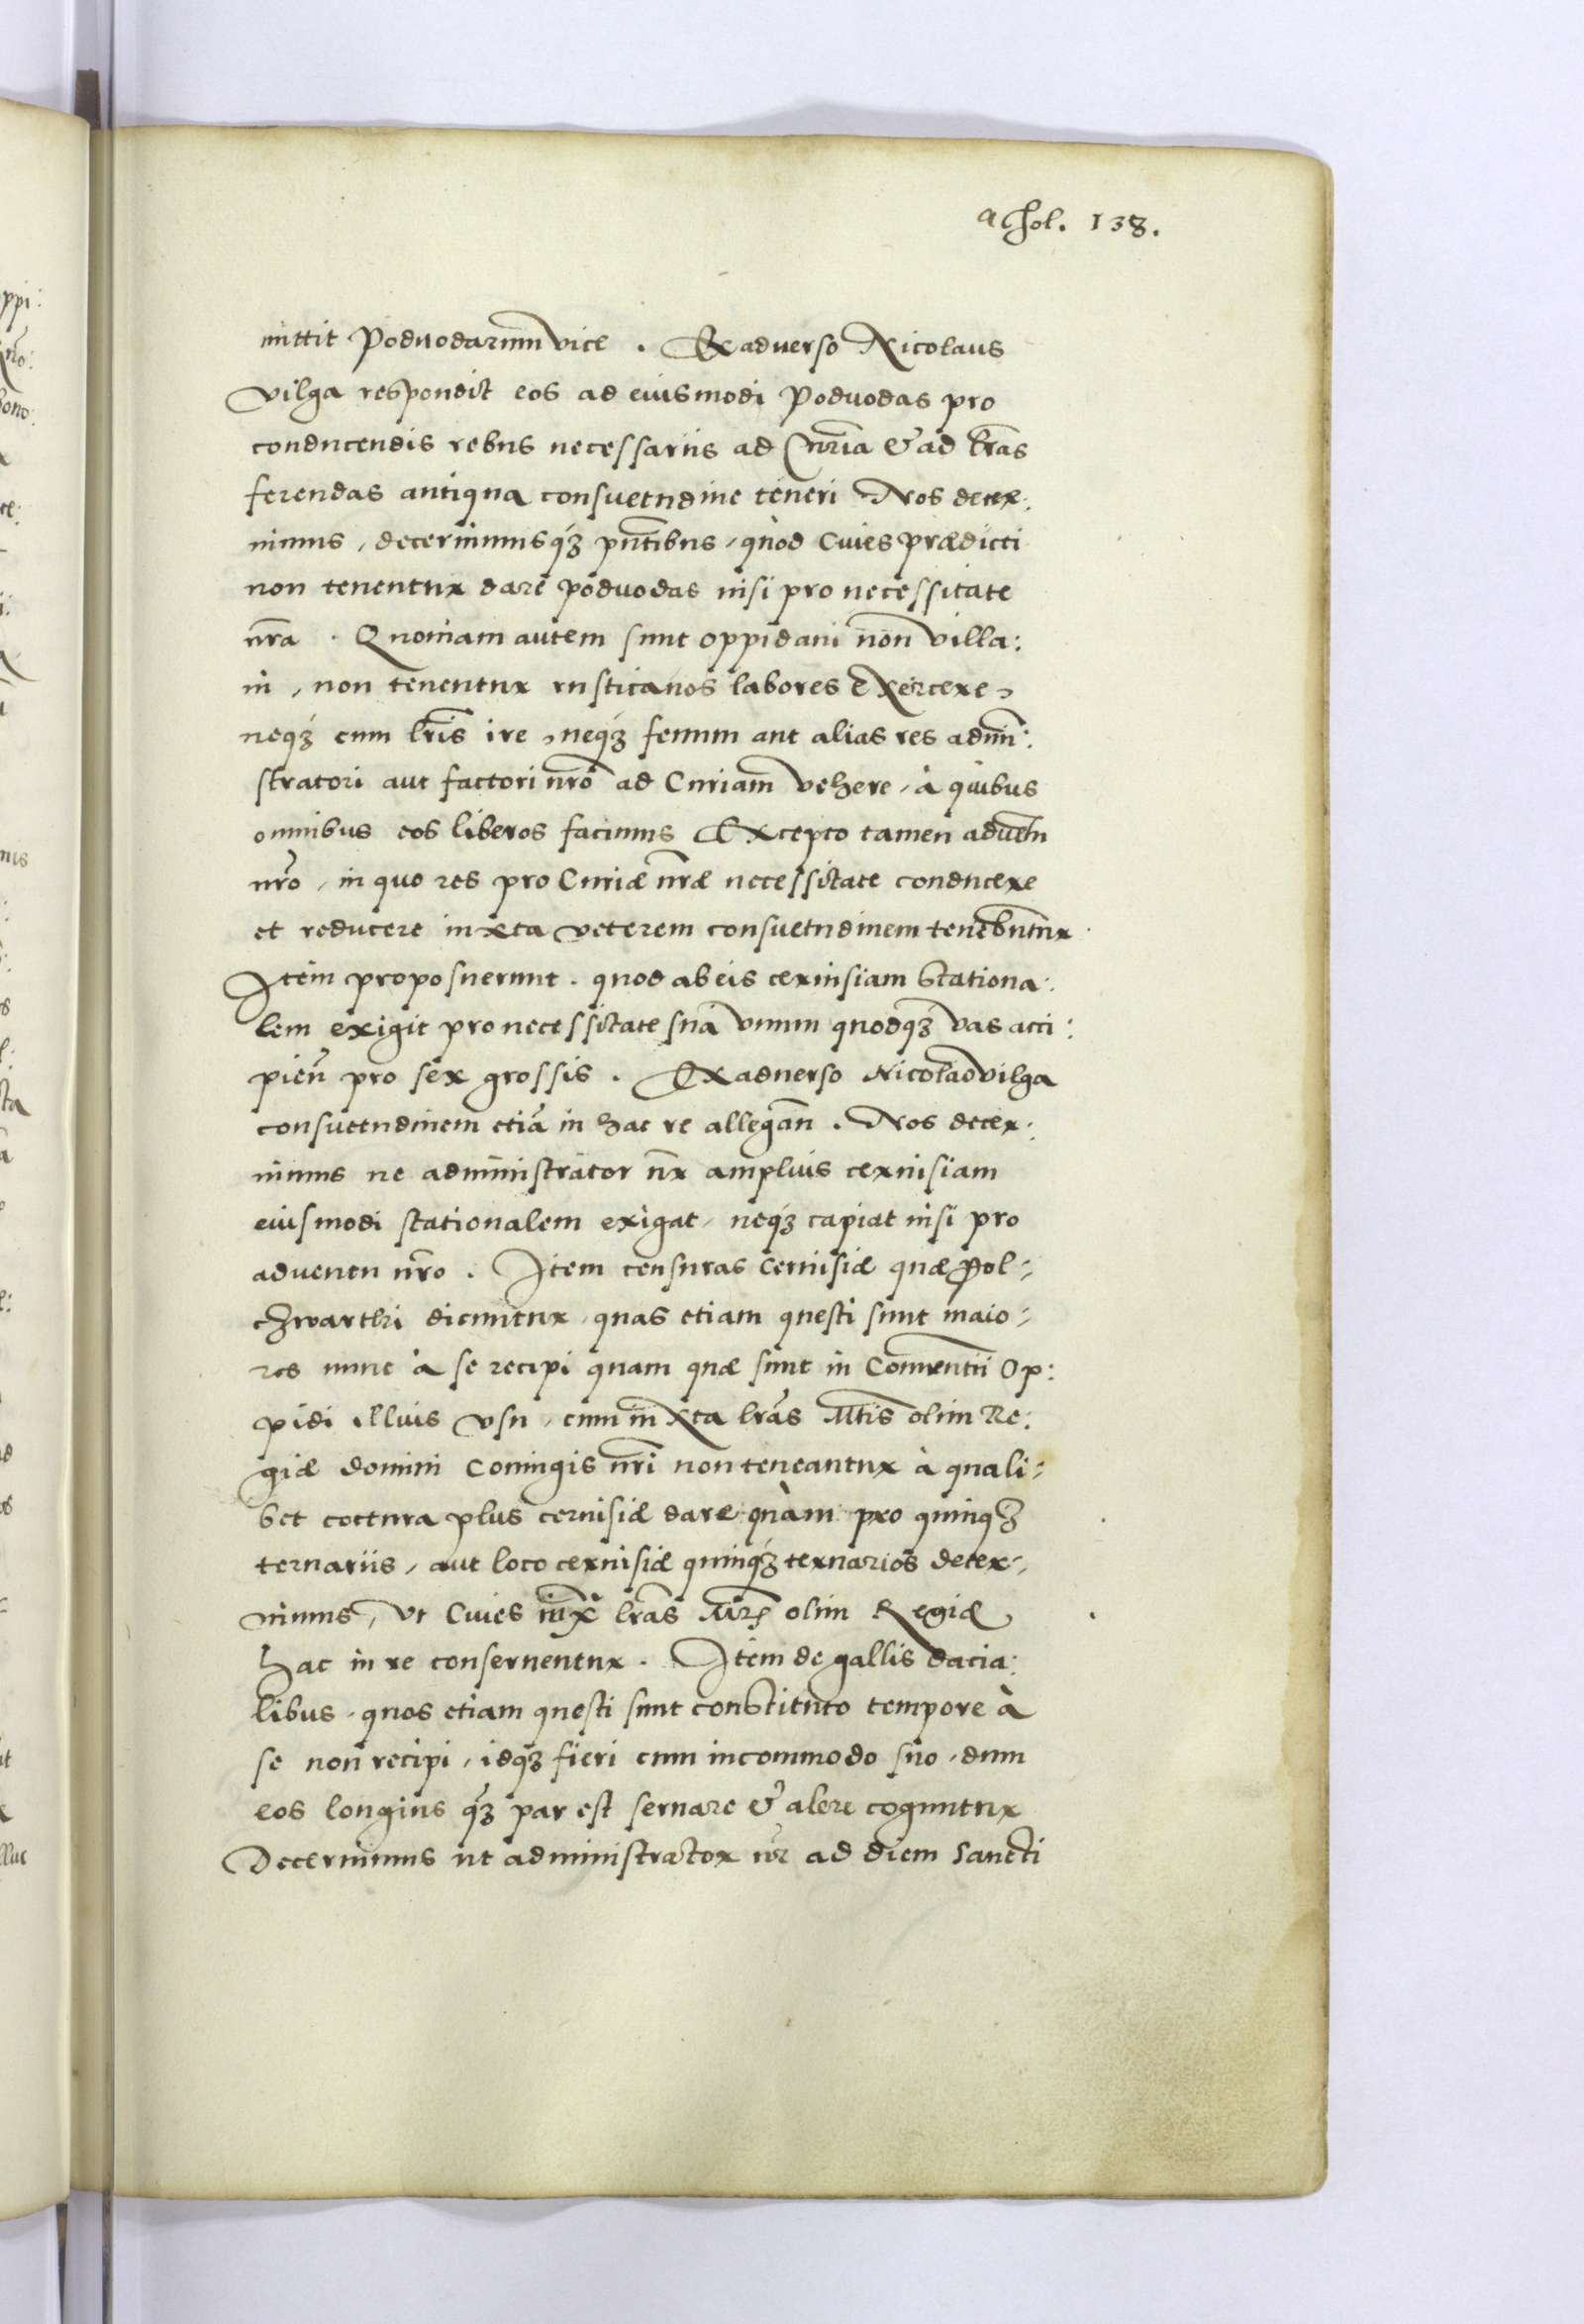 a fol. 138.
mittit Poduodarum vice . Ex aduerso Nicolaus
Vilga respondit eos ad eiusmodi Poduodas pro
conducendis rebus necessariis ad Curia & ad lr̃as
ferendas antiqua consuetudine teneri Nos decer:
nimus, decernimusqꝫ pñtibus, quod Ciues prædicti
non tenentur dare poduodas nisi pro necessitate
nr̃a . Quoniam autem sunt oppidani non villa:
ni, non tenentur rusticanos labores exercere,
neqꝫ cum lr̃is ire, neqꝫ fenum aut alias res admĩ:
stratori aut factori nr̃o ad Curiam vehere, à quibus
omnibus eos liberos facimus Excepto tamen aduen̄
nr̃o, in quo res pro Curiæ nr̃æ necessitate conducere
et reducere iuxta veterem consuetudinem tenebuntur
Item proposuerunt . quod ab eis ceruisiam Stationa:
lem exigit pro necessitate sua vnum quodqꝫ vas acci:
pien̄ pro sex grossis . Ex aduerso Nicolao Vilga
consuetudinem etiã in hac re allegan̄ . Nos decer:
nimus ne administrator nr̃ amplius ceruisiam
eiusmodi stationalem exigat, neqꝫ capiat nisi pro
aduentu nr̃o . Item censuras Ceruisiæ quæ Pol=
czwarthi dicuntur, quas etiam questi sunt maio=
res nunc à se recipi quam quæ sunt in Conuentũ Op:
pidi illius vsu, cum iuxta lr̃as Mt̃is olim Re:
giæ domini Coniugis nr̃i non teneantur à quali=
bet coctura plus ceruisiæ dare quàm pro quinqꝫ
ternariis, aut loco ceruisiæ quinqꝫ ternarios decer=
nimus, vt Ciues iux̃ lr̃as olim Regiæ
hac in re conseruentur . Item de gallis dacia:
libus, quos etiam questi sunt constituto tempore à
se non recipi, idqꝫ fieri cum incommodo suo, dum
eos longius qꝫ par est seruare & alere coguntur
Decernimus ut administrator nr̃ ad diem Sancti